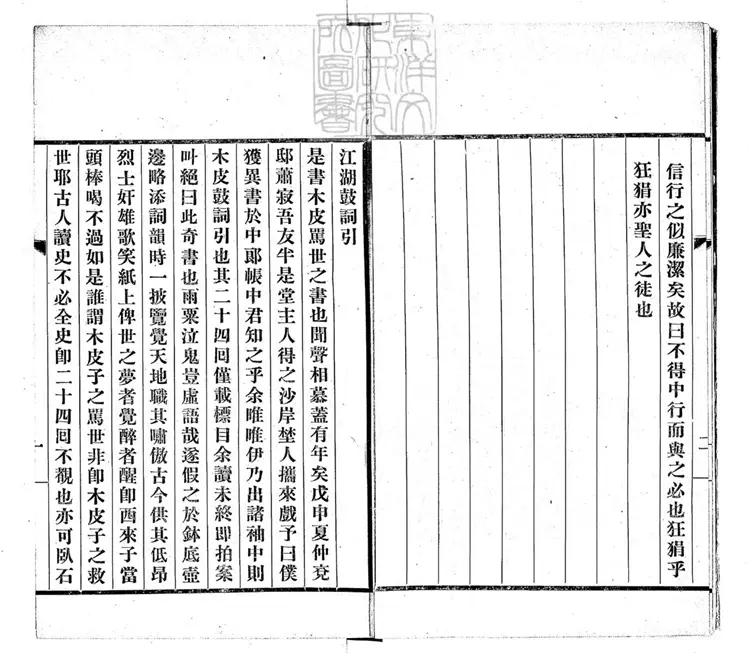 信行之似廉潔矣故曰不得中行而與之必也狂狷乎
狂狷亦聖人之徒也
二
江湖鼓詞引
是書木皮罵世之書也聞聲相慕蓋有年矣戊申夏仲兗
邸蕭寂吾友半是堂主人得之沙岸埜人攜來戲予曰僕
獲異書於中郎帳中君知之乎余唯唯伊乃出諸袖中則
木皮鼓詞引也其二十四囘僅載標目余讀未終即拍案
叫絕曰此奇書也雨粟泣鬼豈虛語哉遂假之於鉢底壺
邊略添詞韻時一披覽覺天地職其嘯傲古今供其低昂
烈士奸雄歌笑紙上俾世之夢者覺醉者醒卽酉來子當
頭棒喝不過如是誰謂木皮子之罵世非卽木皮子之救
世耶古人讀史不必全史卽二十四囘不覩也亦可臥石
一
東洋文
化研究
所圖書